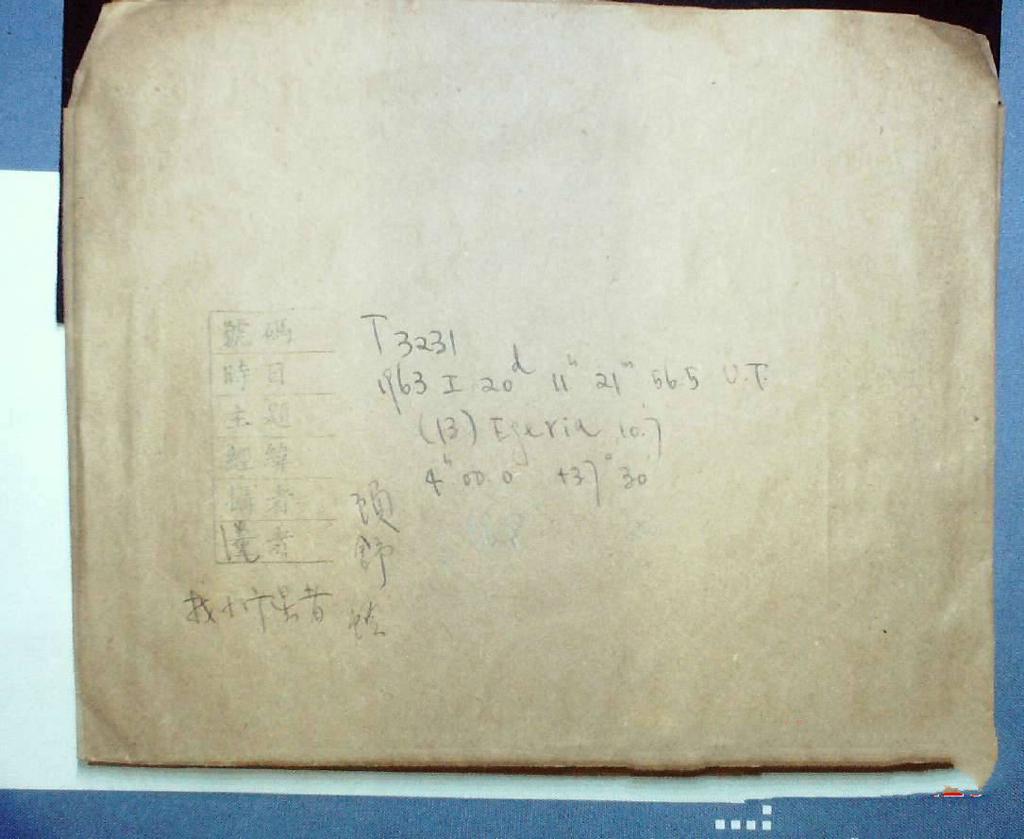 號碼 T3231
時日 1963 I 20ᵈ 11ʰ 21ᵐ 56.5 U.T.
主題 (13) Egeria 10.7
經緯 4ʰ 00.0 +37° 30'
攝者
者 舒
找小行星者